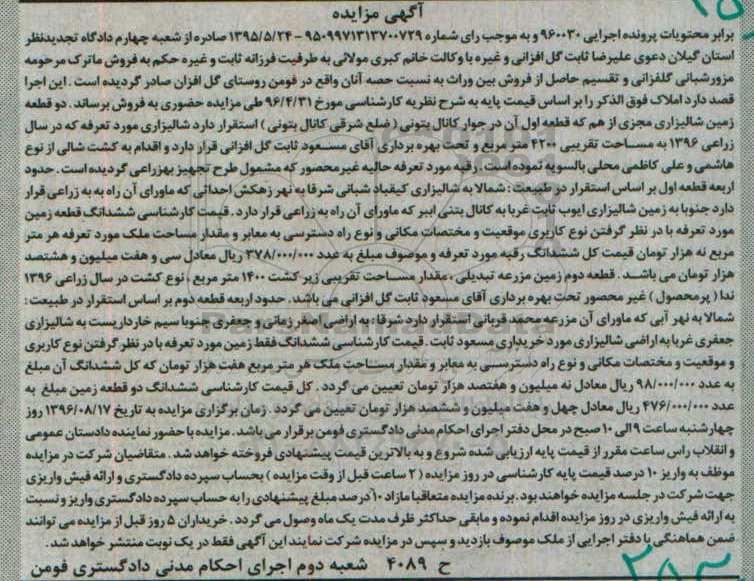 آگهی مزایده
برابر محتویات پرونده اجرایی ۹۶۰۰۳۰ و به موجب رای شماره ۹۵۰۹۹۷۱۳۱۳۷۰۰۷۲۹ - ۱۳۹۵/۵/۲۴ صادره از شعبه چهارم دادگاه تجدیدنظر
استان گیلان دعوی علیرضا ثابت گل افزانی و غیره با وکالت خانم کبری مولائی به طرفیت فرزانه ثابت و غیره حکم به فروش ماترک مرحومه
مزورشبانی گلفزانی و تقسیم حاصل از فروش بین وراث به نسبت حصه آنان واقع در فومن روستای گل افزان صادر گردیده است . این اجرا
قصد دارد املاک فوق الذکر را بر اساس قیمت پایه به شرح نظریه کارشناسی مورخ ۹۶/۴/۳۱ طی مزایده حضوری به فروش برساند . دو قطعه
زمین شالیزاری مجزی از هم که قطعه اول آن در جوار کانال بتونی ( ضلع شرقی کانال بتونی ) استقرار دارد شالیزاری مورد تعرفه که در سال
زراعی ۱۳۹۶ به مساحت تقریبی ۴۲۰۰ متر مربع و تحت بهره برداری آقای مسعود ثابت گل افزانی قرار دارد و اقدام به کشت شالی از نوع
هاشمی و علی کاظمی محلی بالسویه نموده است . رقبه مورد تعرفه حالیه غیرمحصور که مشمول طرح تجهیز بهزراعی گردیده است . حدود
اربعه قطعه اول بر اساس استقرار در طبیعت : شمالا به شالیزاری کیقباد شبانی شرقا به نهر زهکش احداثی که ماورای آن راه به به زراعی قرار
دارد جنوبا به زمین شالیزاری ایوب ثابت غربا به کانال بتنی ایبر که ماورای آن راه به زراعی قرار دارد . قیمت کارشناسی ششدانگ قطعه زمین
مورد تعرفه با در نظر گرفتن نوع کاربری موقعیت و مختصات مکانی و نوع راه دسترسی به معابر و مقدار مساحت ملک مورد تعرفه هر متر
مربع نه هزار تومان قیمت کل ششدانگ رقبه مورد تعرفه و موصوف مبلغ به عدد ۳۷۸/۰۰۰/۰۰۰ ریال معادل سی و هفت میلیون و هشتصد
هزار تومان می باشد . قطعه دوم زمین مزرعه تبدیلی ، مقدار مساحت تقریبی زیر کشت ۱۴۰۰ متر مربع ، نوع کشت در سال زراعی ۱۳۹۶
ندا ( پرمحصول ) غیر محصور تحت بهره برداری آقای مسعود ثابت گل افزانی می باشد . حدود اربعه قطعه دوم بر اساس استقرار در طبیعت :
شمالا به نهر آبی که ماورای آن مزرعه محمد قربانی استقرار دارد شرقا : به اراضی اصغر زمانی و جعفری جنوبا سیم خارداریست به شالیزاری
جعفری غربا به اراضی شالیزاری مورد خریداری مسعود ثابت . قیمت کارشناسی ششدانگ فقط زمین مورد تعرفه با در نظر گرفتن نوع کاربری
و موقعیت و مختصات مکانی و نوع راه دسترسی به معابر و مقدار مساحت ملک هر متر مربع هفت هزار تومان که کل ششدانگ آن مبلغ
به عدد ۹۸/۰۰۰/۰۰۰ ریال معادل نه میلیون و هفتصد هزار تومان تعیین می گردد . کل قیمت کارشناسی ششدانگ دو قطعه زمین مبلغ به
عدد ۴۷۶/۰۰۰/۰۰۰ ریال معادل چهل و هفت میلیون و ششصد هزار تومان تعیین می گردد . زمان برگزاری مزایده به تاریخ ۱۳۹۶/۰۸/۱۷ روز
چهارشنبه ساعت ۹ الی ۱۰ صبح در محل دفتر اجرای احکام مدنی دادگستری فومن برقرار می باشد . مزایده با حضور نماینده دادستان عمومی
و انقلاب راس ساعت مقرر از قیمت پایه ارزیابی شده شروع و به بالاترین قیمت پیشنهادی فروخته خواهد شد . متقاضیان شرکت در مزایده
موظف به واریز ۱۰ درصد قیمت پایه کارشناسی در روز مزایده ( ۲ ساعت قبل از وقت مزایده ) بحساب سپرده دادگستری و ارائه فیش واریزی
جهت شرکت در جلسه مزایده خواهند بود . برنده مزایده متعاقبا مازاد ۱۰ درصد مبلغ پیشنهادی را به حساب سپرده دادگستری واریز و نسبت
به ارائه فیش واریزی در روز مزایده اقدام نموده و مابقی حداکثر ظرف مدت یک ماه وصول می گردد . خریداران ۵ روز قبل از مزایده می توانند
ضمن هماهنگی با دفتر اجرایی از ملک موصوف بازدید و سپس در مزایده شرکت نمایند این آگهی فقط در یک نوبت منتشر خواهد شد .
ح ۴۰۸۹ شعبه دوم اجرای احکام مدنی دادگستری فومن